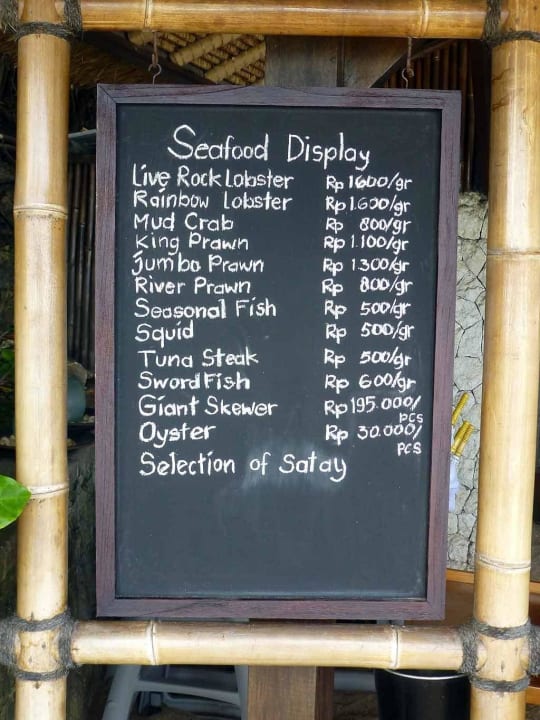 Seafood Display
Live Rock Lobster Rp 1600/gr
Rainbow Lobster Rp 1.600/gr
Mud Crab Rp 800/gr
King Prawn Rp 1.100/gr
Jumbo Prawn Rp 1.300/gr
River Prawn Rp 800/gr
Seasonal Fish Rp 500/gr
Squid Rp 500/gr
Tuna Steak Rp 500/gr
SwordFish Rp 600/gr
Giant Skewer Rp 195.000/
pcs
Oyster Rp 30.000/
pcs
Selection of Satay